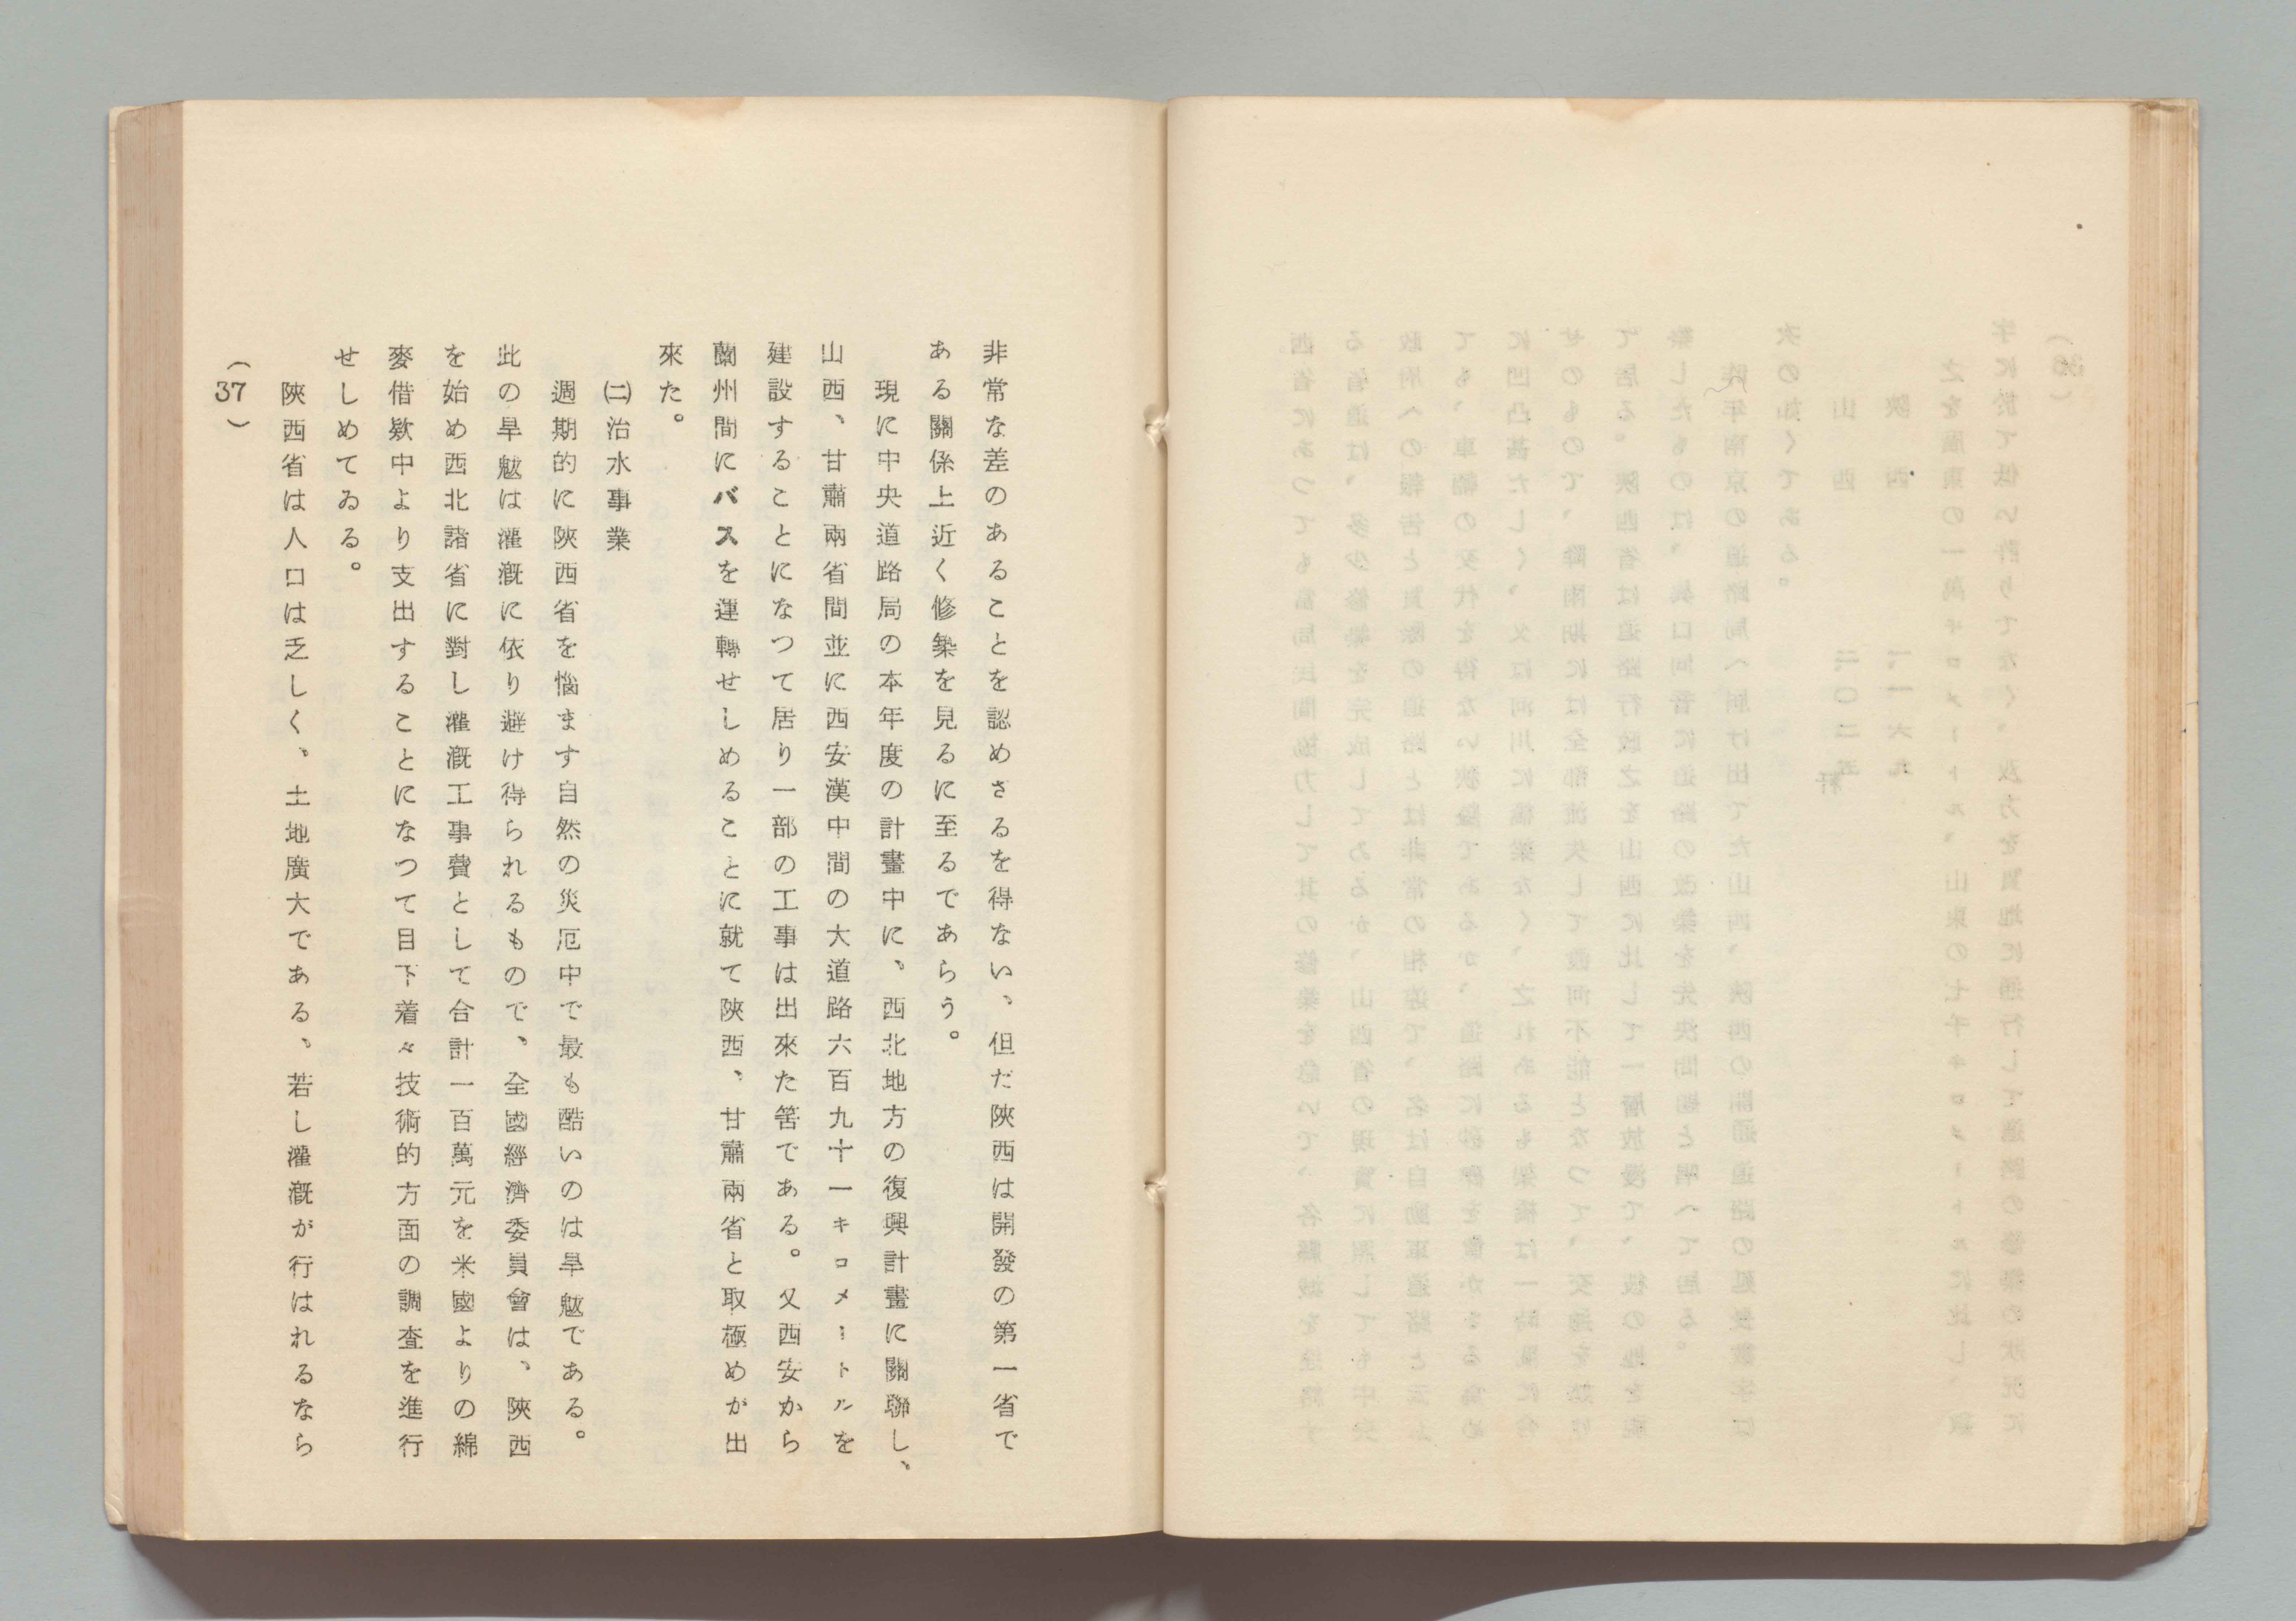 非常な差のあることを認めさるを得ない、但だ陝西は開發の第一省で
ある關係上近く修築を見るに至るであらう。
現に中央道路局の本年度の計畫中に、西北地方の復興計畫に關聯し、
山西、甘肅兩省間並に西安漢中間の大道路六百九十一キロメートルを
建設することになつて居り一部の工事は出來た筈である。又西安から
蘭州間にバスを運轉せしめることに就て陝西、甘肅兩省と取極めが出
來た。
㈡治水事業
週期的に陝西省を惱ます自然の災厄中で最も酷いのは旱魃である。
此の旱魃は灌漑に依り避け得られるもので、全國經濟委員會は、陝西
を始め西北諸省に對し灌漑工事費として合計一百萬元を米國よりの綿
麥借欵中より支出することになつて目下着々技術的方面の調査を進行
せしめてゐる。
陝西省は人口は乏しく、土地廣大である、若し灌漑が行はれるなら
（37）